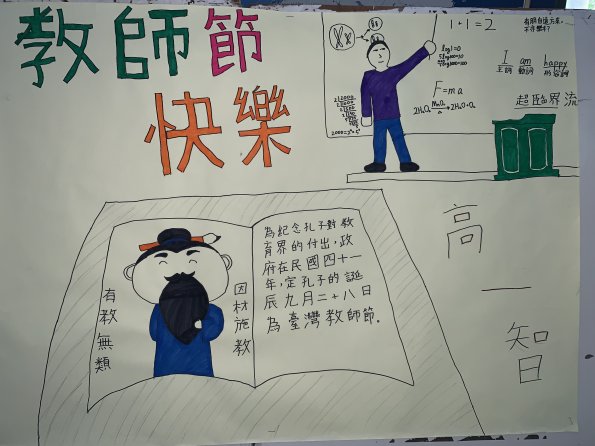 教師節
快樂
1+1=2
有朋自遠方來,
不亦樂乎?
I am happy
主詞 動詞 形容詞
log1=0
F=ma
超臨界流
有教無類
因材施教
為紀念孔子對教
育界的付出,政
府在民國四十一
年,定孔子的誕
辰九月二十八日
為臺灣教師節。
高一知日